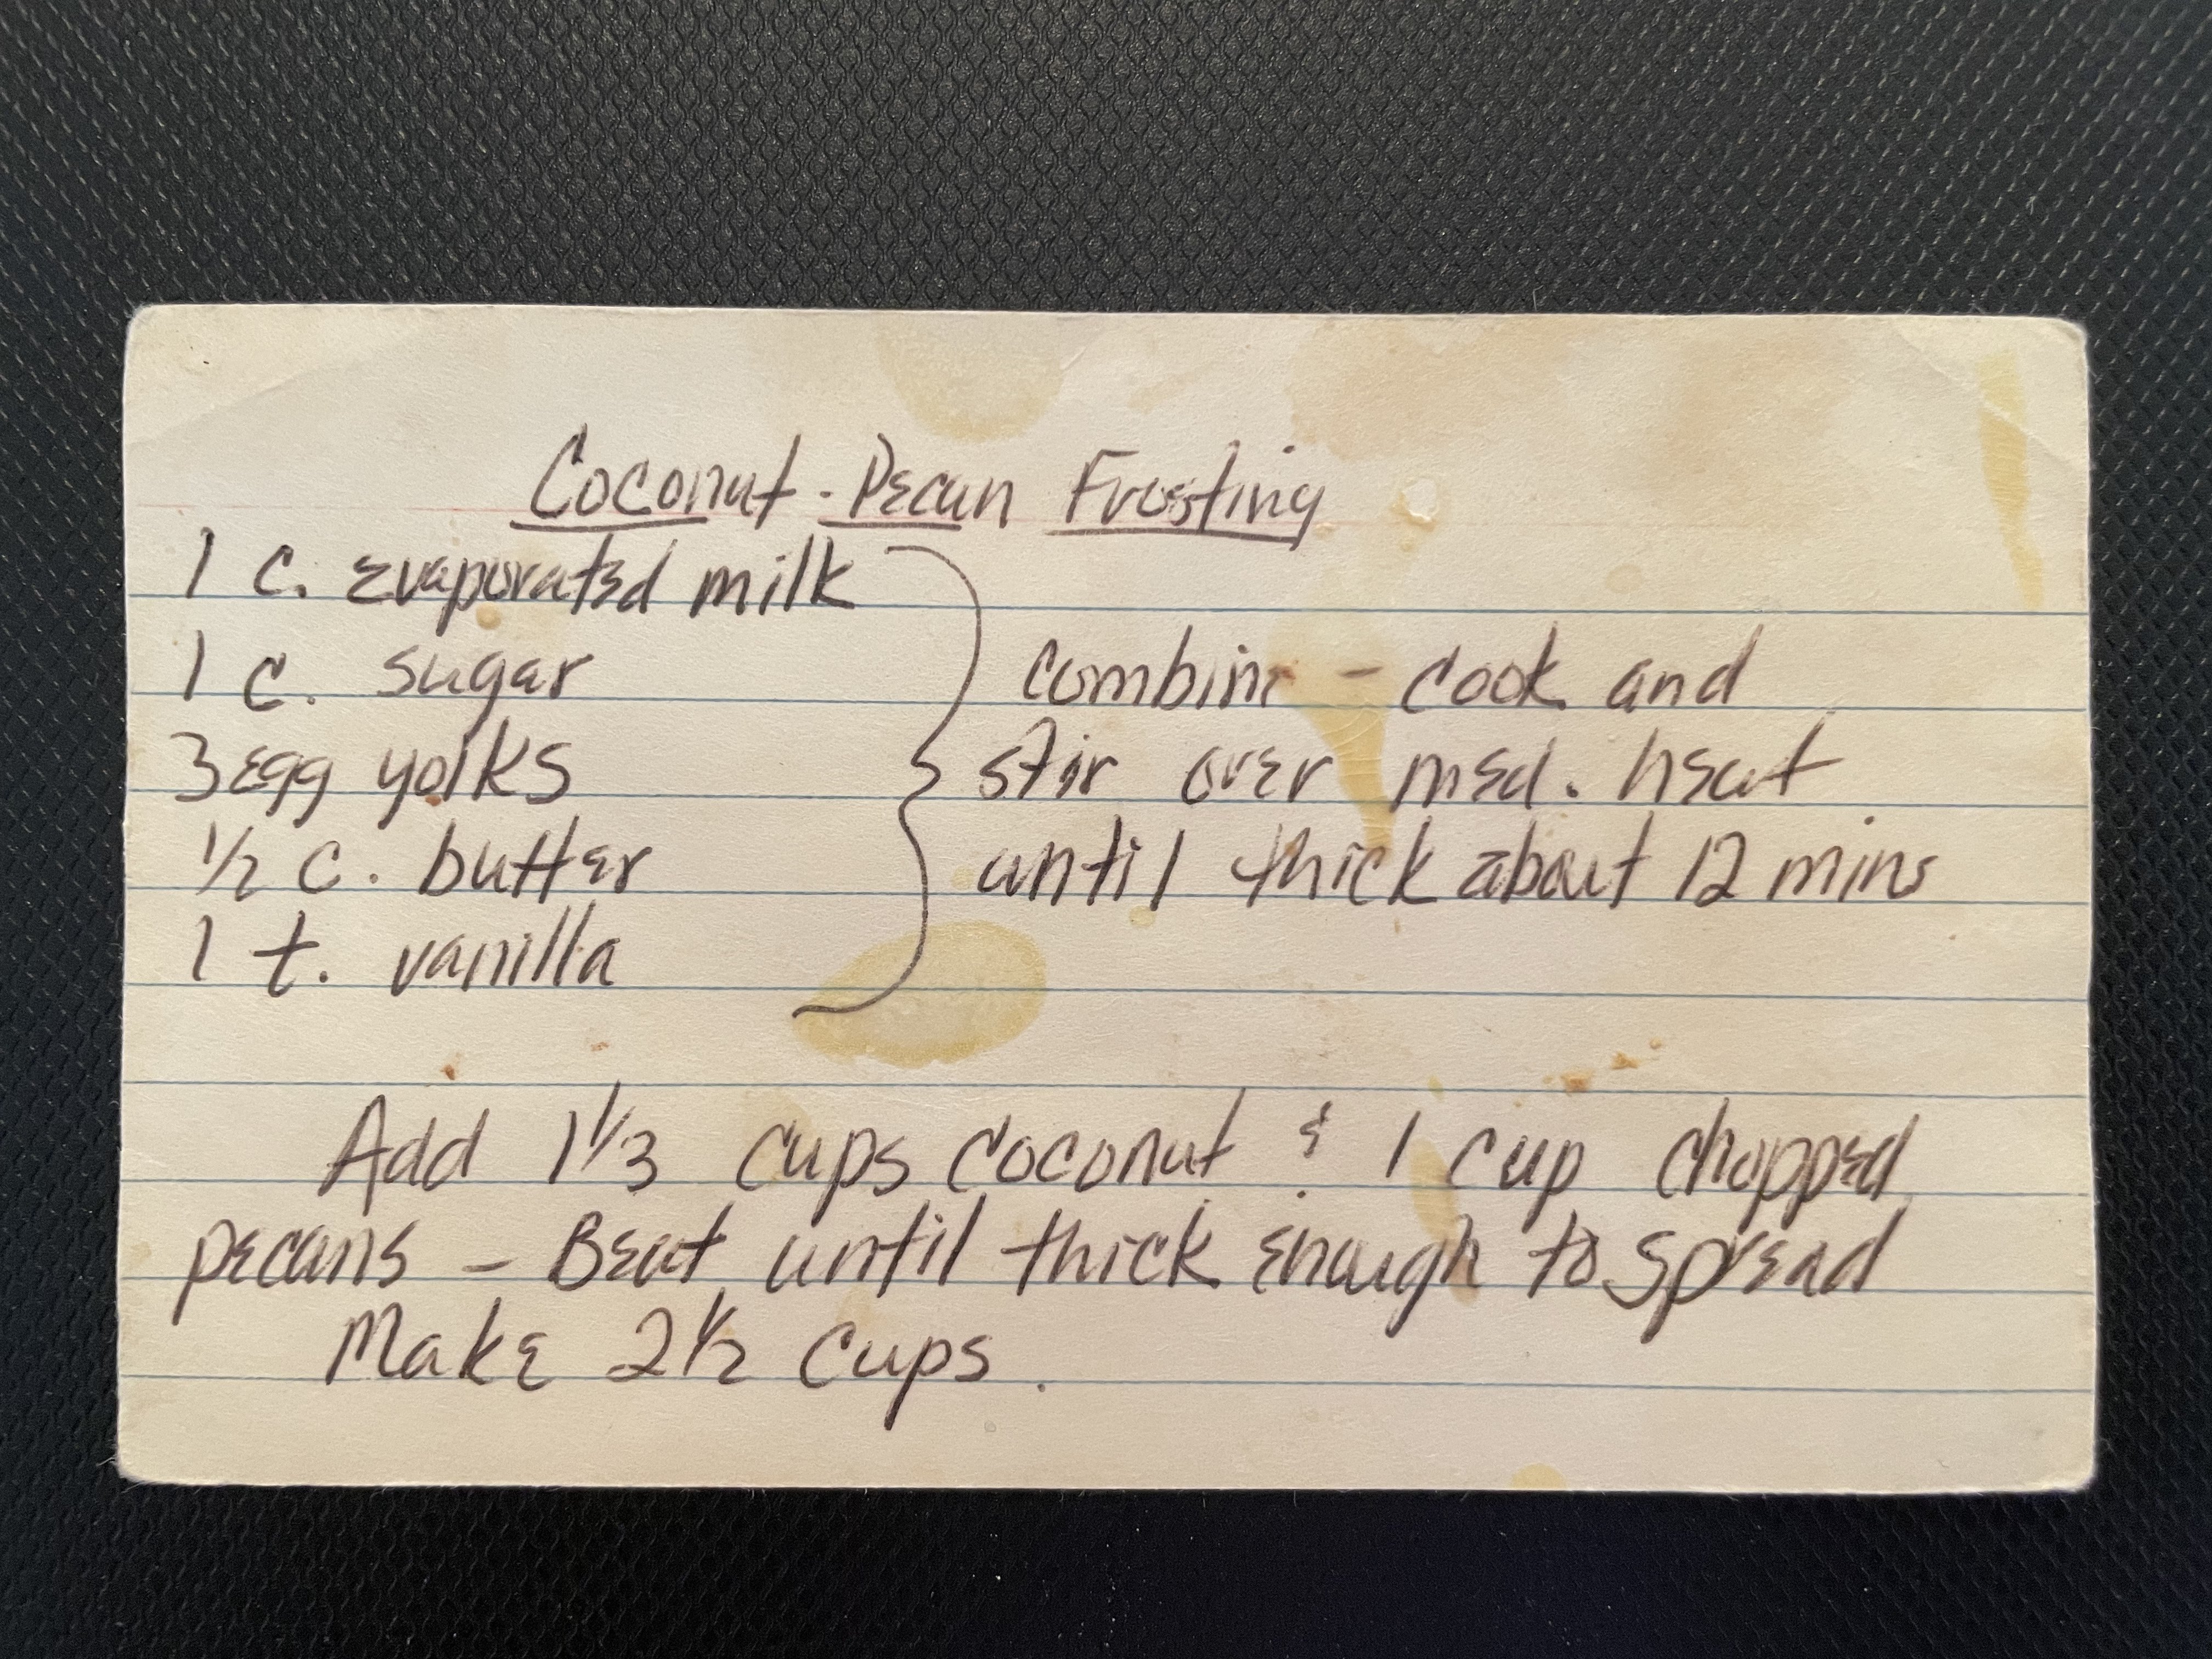 Coconut - Pecan Frosting
1 c. evaporated milk
1 c. sugar
3 egg yolks
1/2 c. butter
1 t. vanilla
combine - cook and
stir over med. heat
until thick about 12 mins
Add 1 1/3 cups coconut & 1 cup chopped
pecans - Beat until thick enough to spread
Make 2 1/2 cups.